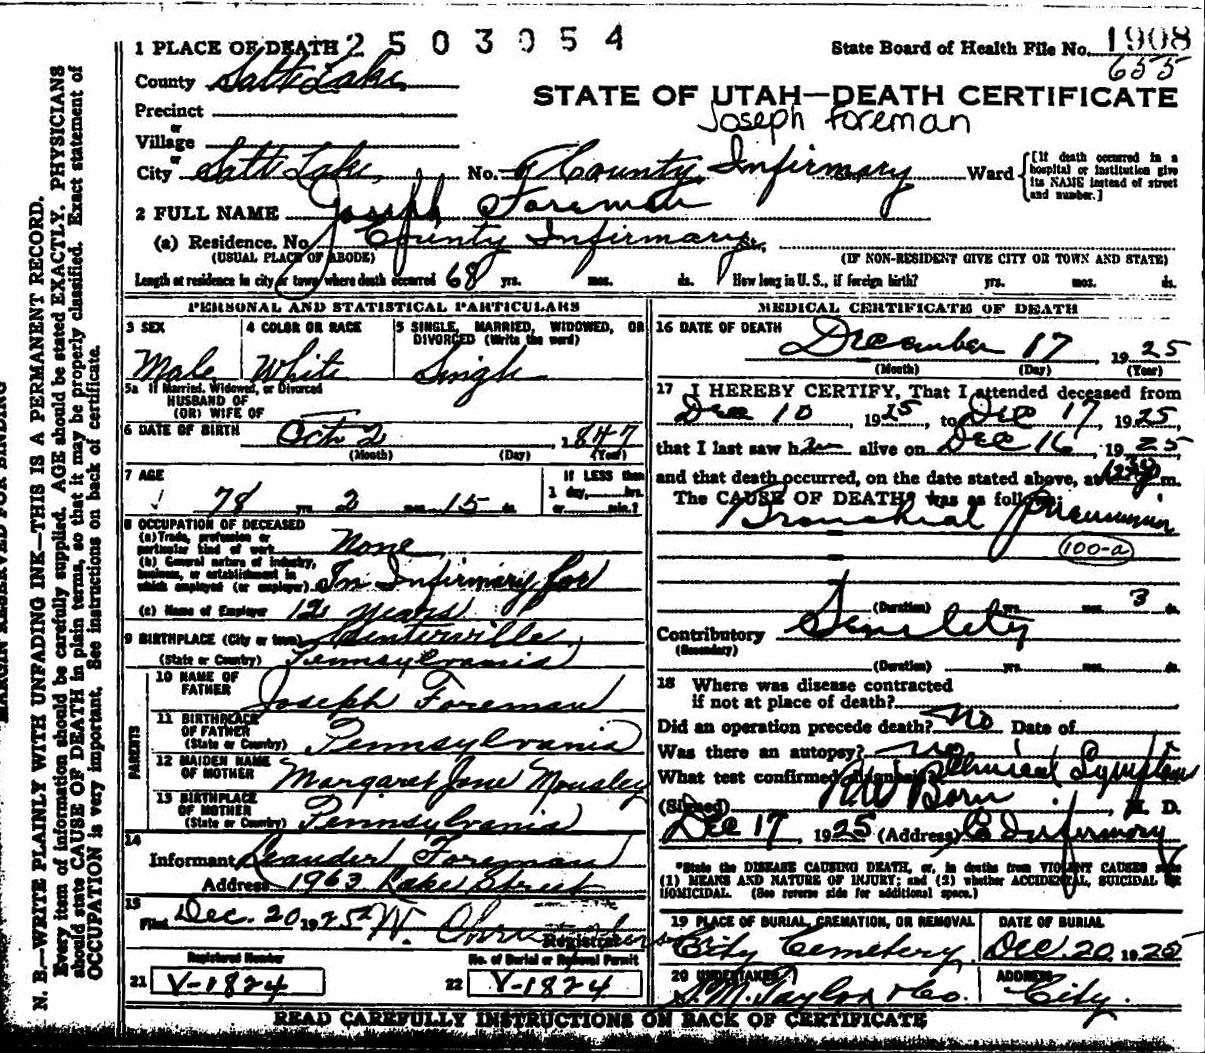 1 PLACE OF DEATH 2503054
State Board of Health File No. 1908
655
County Salt Lake
STATE OF UTAH—DEATH CERTIFICATE
Joseph Foreman
Precinct
or
Village
or
City Salt Lake No. County Infirmary Ward [If death occurred in a hospital or institution give its NAME instead of street and number.]
2 FULL NAME Joseph Foreman
(a) Residence. No. County Infirmary St.
(USUAL PLACE OF ABODE) (IF NON-RESIDENT GIVE CITY OR TOWN AND STATE)
Length of residence in city or town where death occurred 68 yrs. mos. ds. How long in U. S., if foreign birth? yrs. mos. ds.
PERSONAL AND STATISTICAL PARTICULARS
3 SEX
Male
4 COLOR OR RACE
White
5 SINGLE, MARRIED, WIDOWED, OR DIVORCED (Write the word)
Single
5a If Married, Widowed, or Divorced
HUSBAND OF
(OR) WIFE OF
6 DATE OF BIRTH Oct 2 1847
(Month) (Day) (Year)
7 AGE
78 yrs. 2 mos. 15 ds.
If LESS than
1 day, hrs.
or min.?
8 OCCUPATION OF DECEASED
(a) Trade, profession or
particular kind of work None
(b) General nature of industry,
business, or establishment in
which employed (or employer) In Infirmary for
(c) Name of Employer 12 years
9 BIRTHPLACE (City or town) Centerville
(State or Country) Pennsylvania
PARENTS
10 NAME OF
FATHER Joseph Foreman
11 BIRTHPLACE
OF FATHER
(State or Country) Pennsylvania
12 MAIDEN NAME
OF MOTHER Margaret Jane Mousley
13 BIRTHPLACE
OF MOTHER
(State or Country) Pennsylvania
14
Informant Leander Foreman
Address 1963 Lake Street
15
Filed Dec. 20 1925 W.
Registrar
Registered Number
21 V-1824
No. of Burial or Removal Permit
22 V-1824
MEDICAL CERTIFICATE OF DEATH
16 DATE OF DEATH
December 17, 1925
(Month) (Day) (Year)
17 I HEREBY CERTIFY, That I attended deceased from
Dec 10 1925, to Dec 17, 1925,
that I last saw him alive on Dec 16, 1925
and that death occurred, on the date stated above, at m.
The CAUSE OF DEATH* was as follows:
Bronchial Pneumonia
100-a
(Duration) yrs. mos. 3 ds.
Contributory Senility
(Secondary)
(Duration) yrs. mos. ds.
18 Where was disease contracted
if not at place of death?
Did an operation precede death? No Date of
Was there an autopsy? No
What test confirmed diagnosis? Clinical Symptoms
(Signed) M. D.
Dec 17, 1925 (Address) Co Infirmary
*State the DISEASE CAUSING DEATH, or, in deaths from VIOLENT CAUSES state
(1) MEANS AND NATURE OF INJURY; and (2) whether ACCIDENTAL, SUICIDAL or
HOMICIDAL. (See reverse side for additional space.)
19 PLACE OF BURIAL, CREMATION, OR REMOVAL
City Cemetery
DATE OF BURIAL
Dec. 20, 1925
20 UNDERTAKER
S. M. Taylor & Co.
ADDRESS
City.
READ CAREFULLY INSTRUCTIONS ON BACK OF CERTIFICATE
MARGIN RESERVED FOR BINDING
N. B.—WRITE PLAINLY WITH UNFADING INK—THIS IS A PERMANENT RECORD.
Every item of information should be carefully supplied. AGE should be stated EXACTLY. PHYSICIANS
should state CAUSE OF DEATH in plain terms, so that it may be properly classified. Exact statement of
OCCUPATION is very important. See instructions on back of certificate.